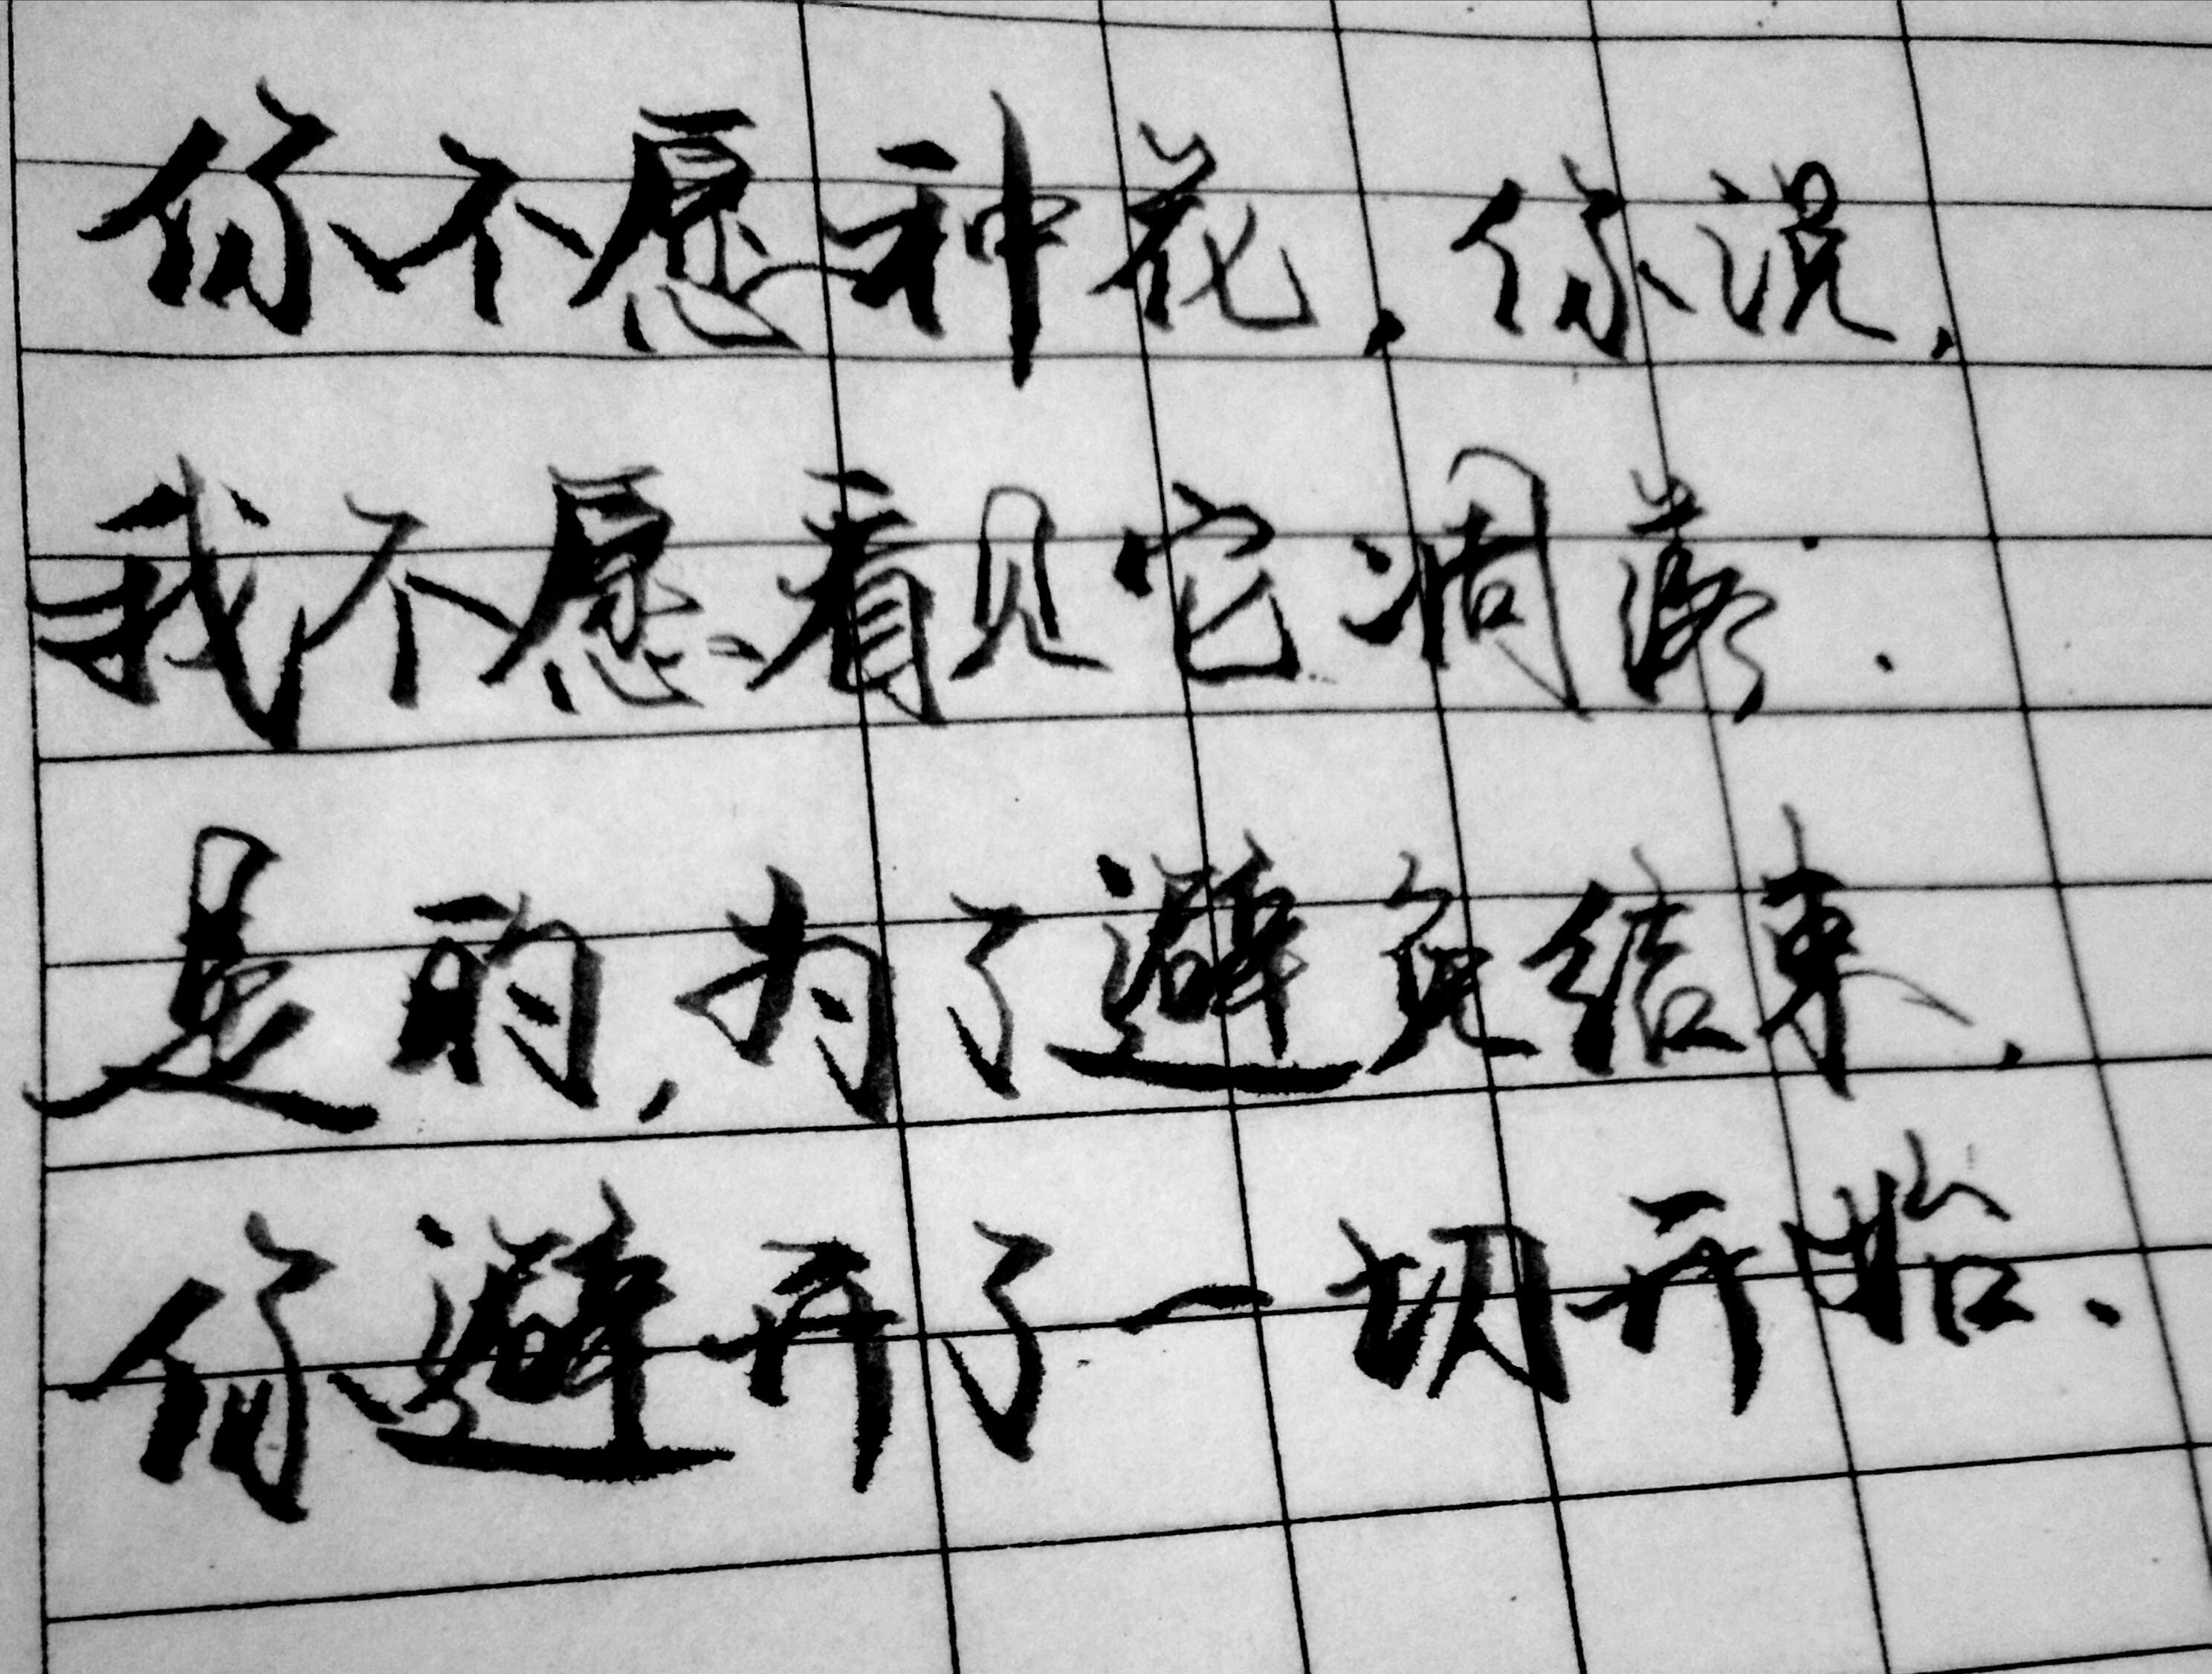 你不愿种花，你说，
我不愿看见它凋落.
是的，为了避免结束，
你避开了一切开始.